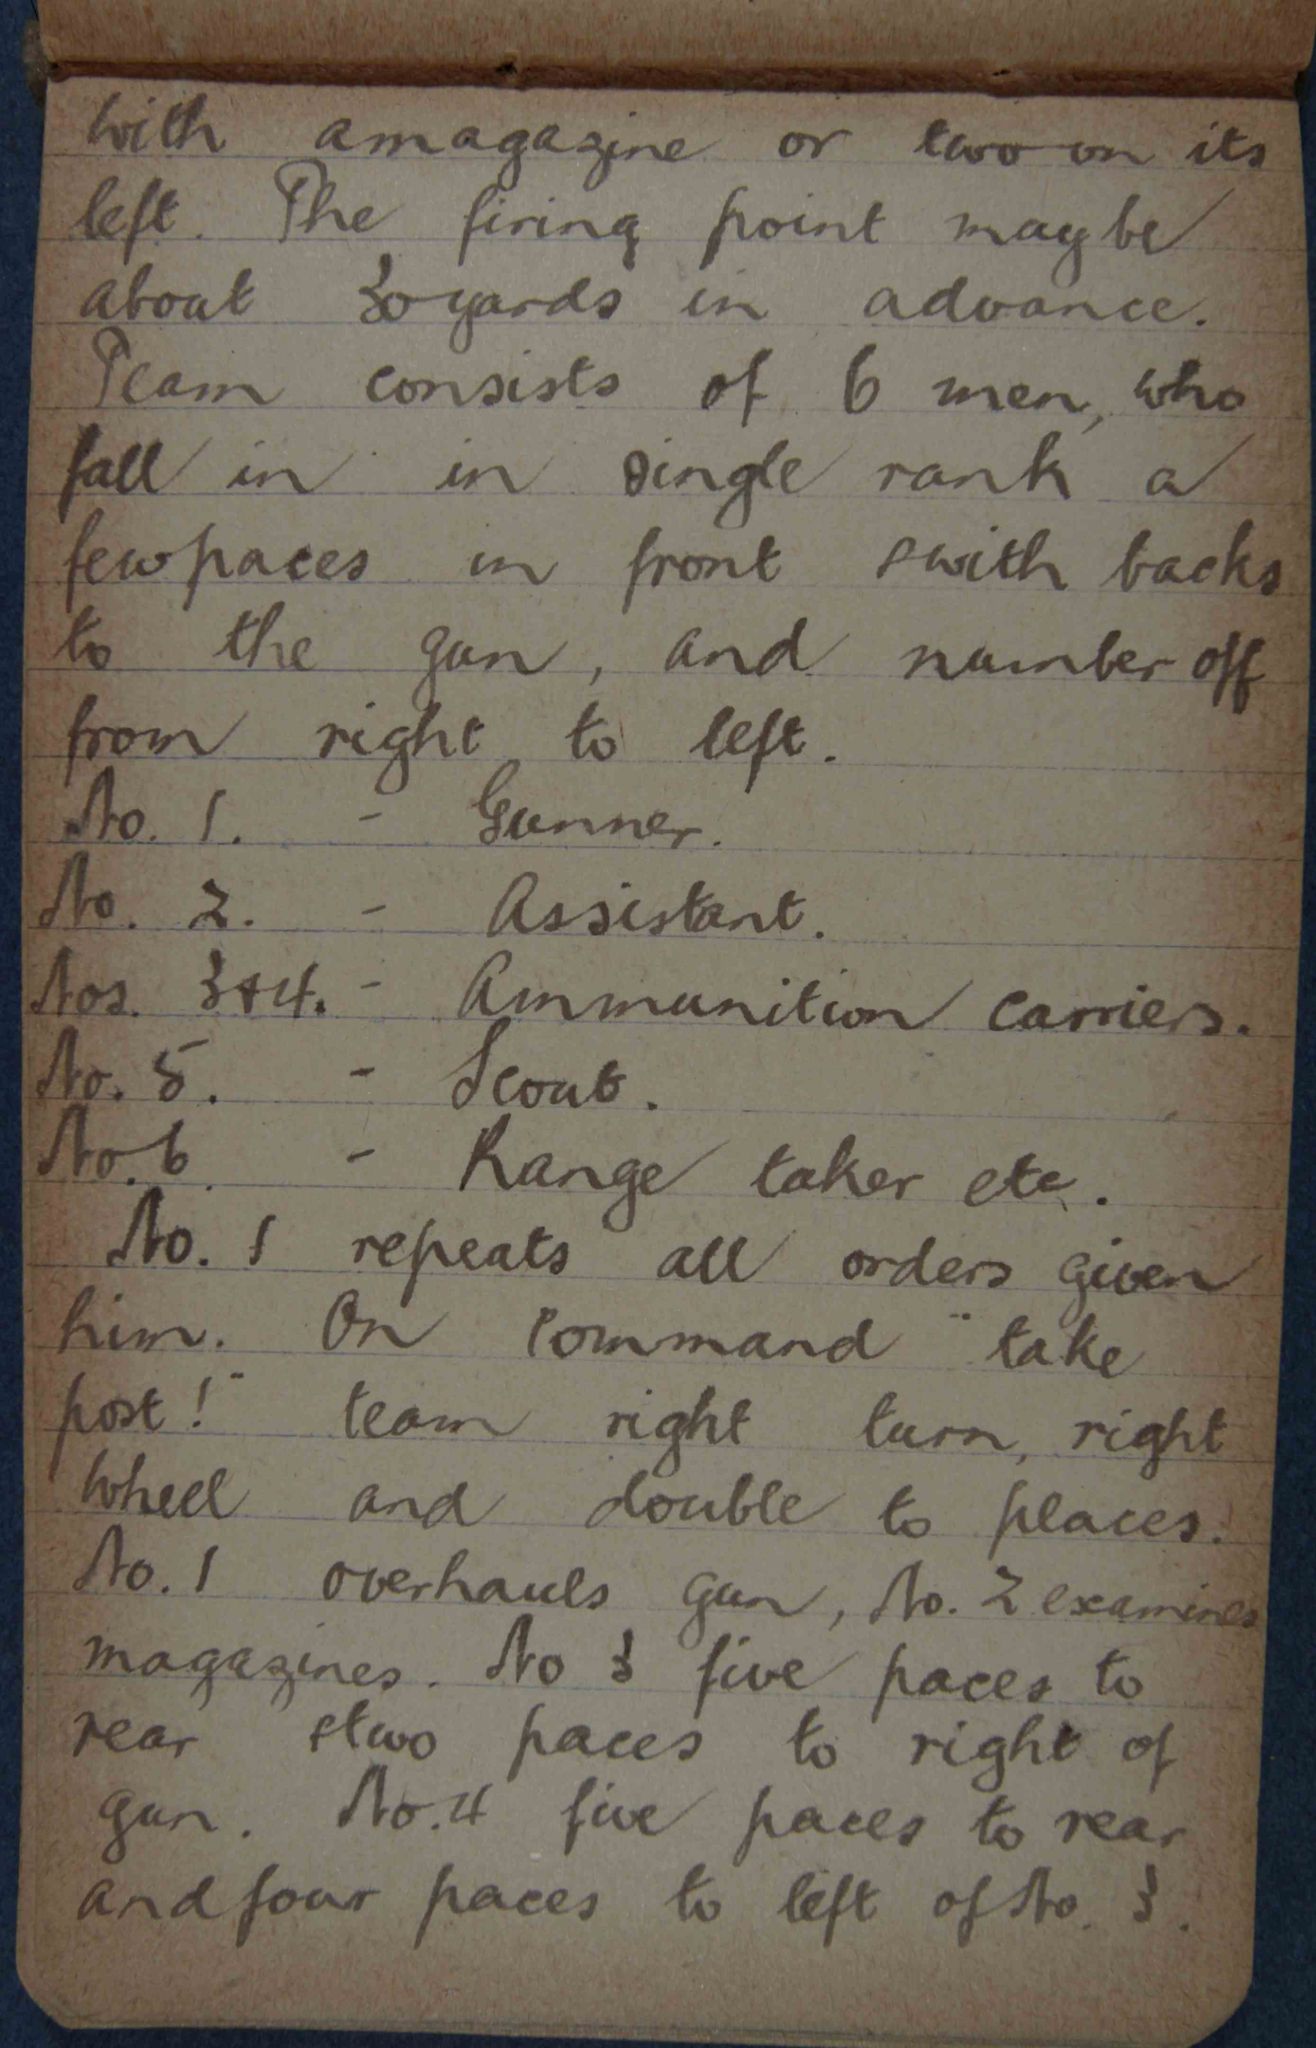 with a magazine or two on its
left. The firing point may be
about 30 yards in advance.
Team consists of 6 men, who
fall in in single rank a
few paces in front & with backs
to the gun, and number off
from right to left.
No. 1. - Gunner.
No. 2. - Assistant.
Nos. 3 & 4. - Ammunition carriers.
No. 5. - Scout.
No. 6 - Range taker etc.
No. 1 repeats all orders given
him. On command "take
post!" team right turn, right
wheel and double to places.
No. 1 overhauls gun, No. 2 examines
magazines. No 3 five paces to
rear & two paces to right of
gun. No. 4 five paces to rear
and four paces to left of No. 3.